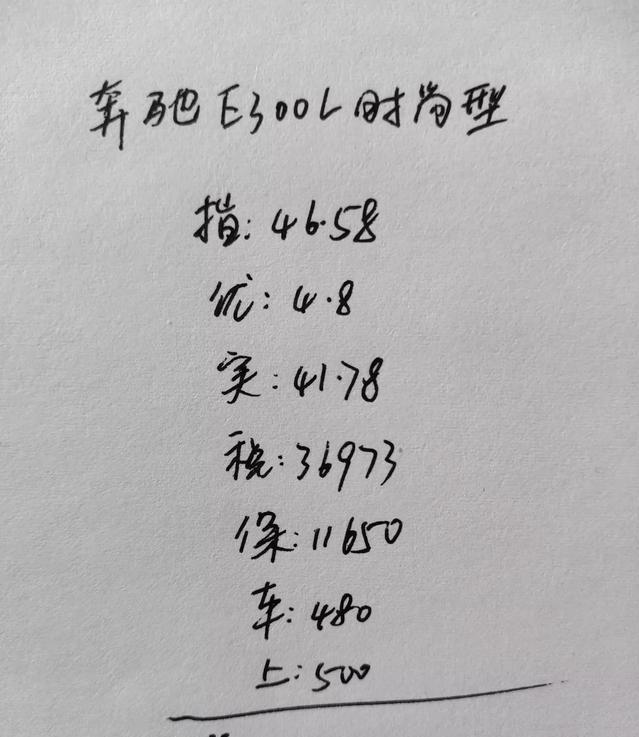 奔驰E300L时尚型
指: 46.58
优: 4.8
实: 41.78
税: 36973
保: 11650
车: 480
上: 500